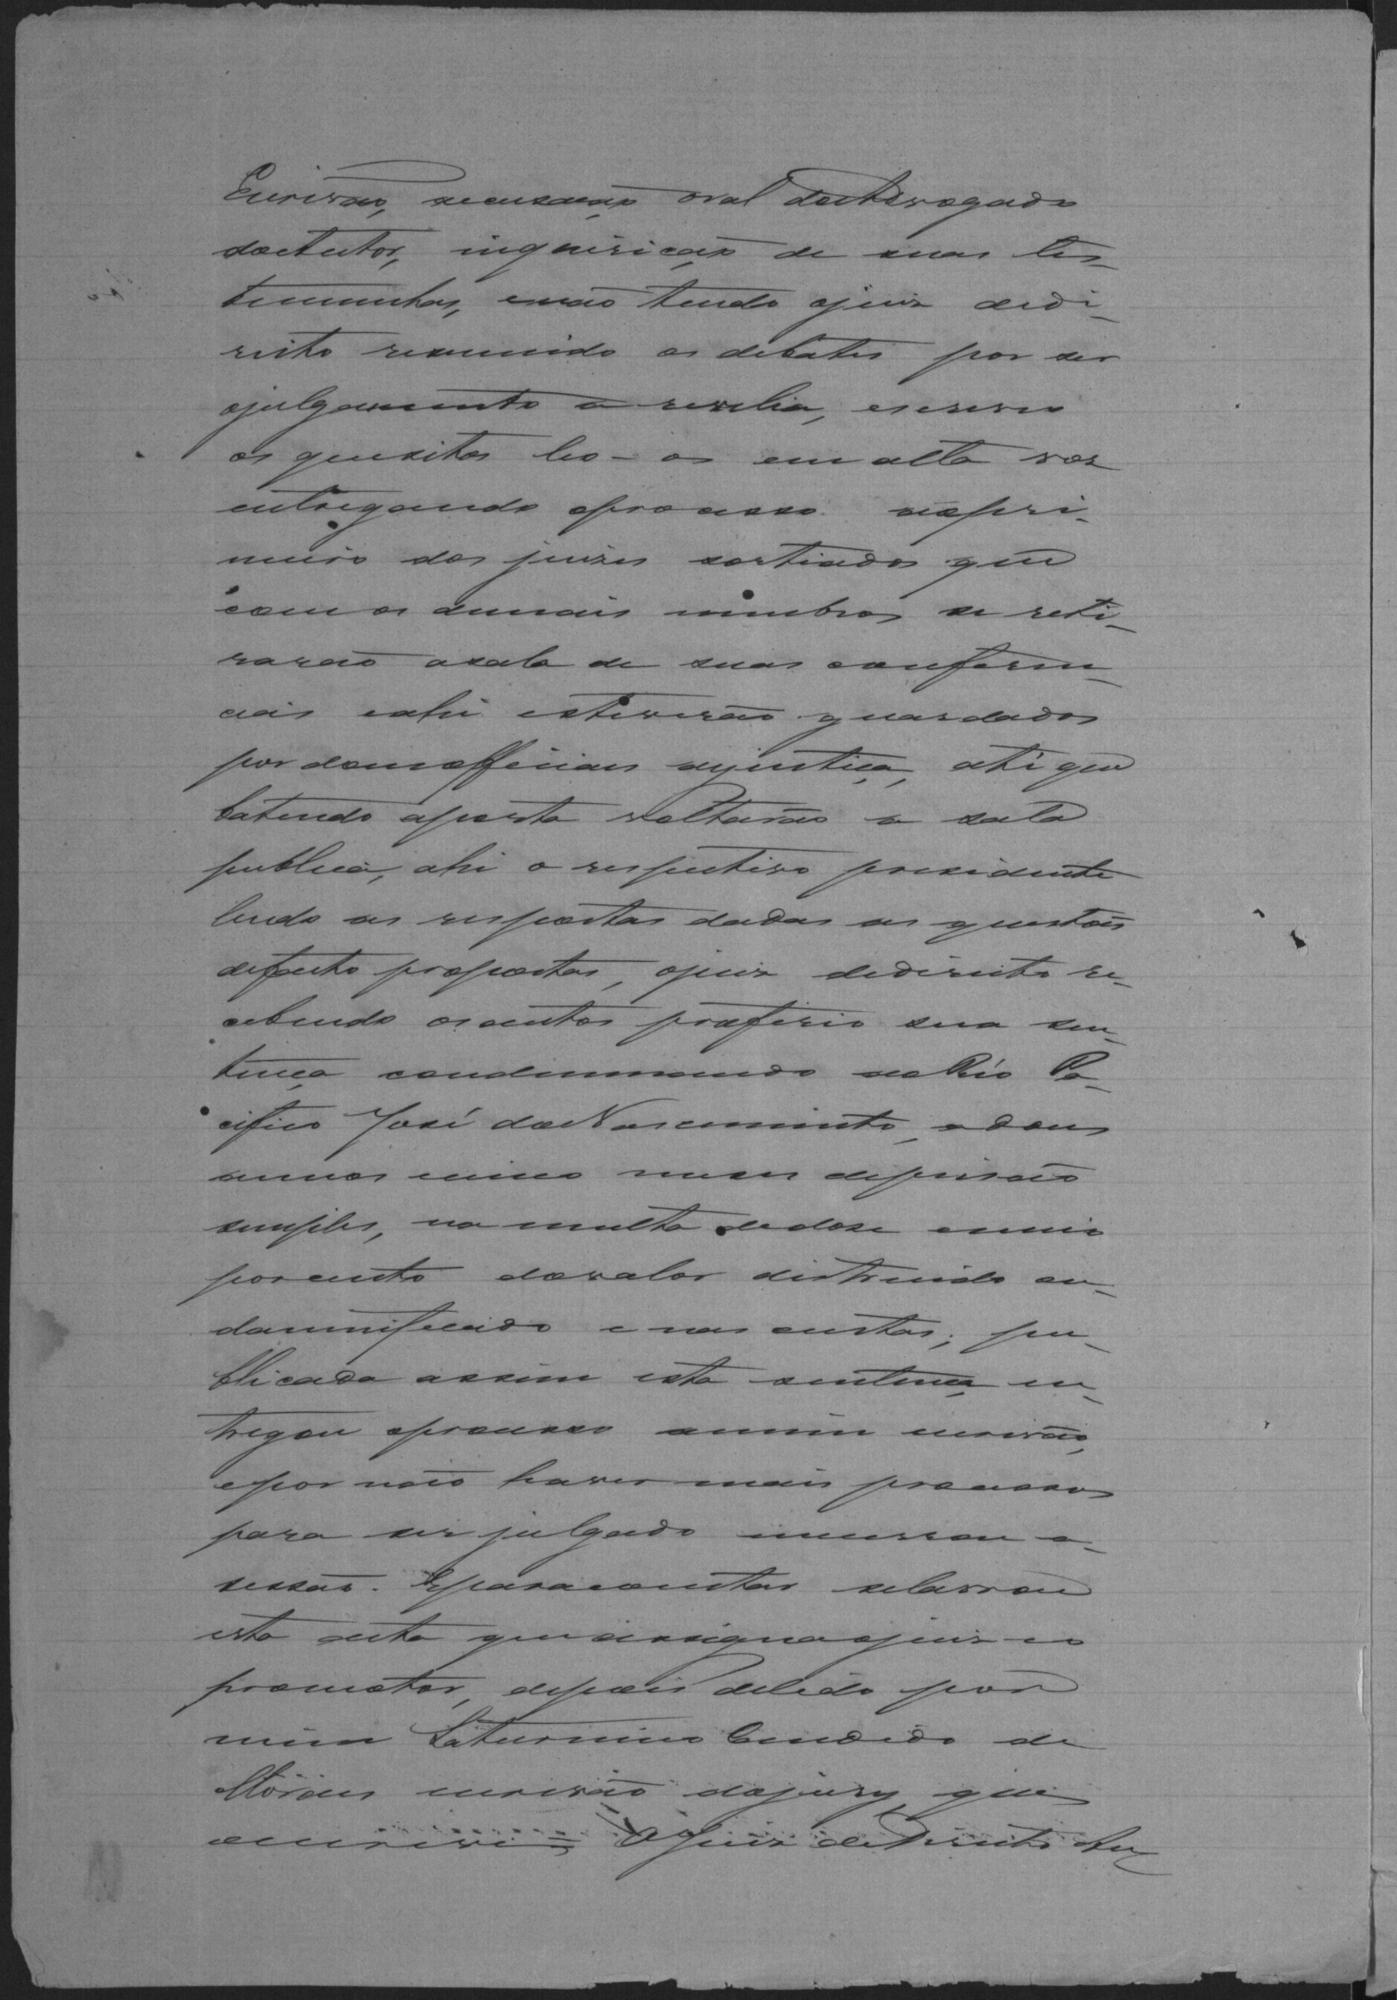 Escrivão, accusação oral do Advogado
do autor, inquirição de suas tes-
temunhas, e não tendo o juiz de di-
reito resumido os debates por ser
o julgamento a revelia, escreveo
os quesitos leo-os em alta voz
entregando o processo ao pri-
meiro dos juizes sortiados que
com os demais membros se reti-
rarão a sala de suas conferen-
cias e ahi estiverão guardados
por dous officiaes de justiça, até que
batendo a porta voltarão a sala
publica, ahi o respectivo presidente
lendo as respostas dadas as questões
de facto propostas, o juiz de direito re-
cebendo os autos proferio sua sen-
tença condemnando ao Réo Pa-
cifico José do Nascimento, a dous
annos cinco meses de prisão
simples, na multa de dose e meio
por cento do valor distruido ou
damnificado e nas custas; pu-
blicada assim esta sentença en-
tregou o processo a mim escrivão,
e por não haver mais processos
para ser julgado encerrou a
sessão. E para constar se lavrou
esta acta que assigna o juiz e o
promotor, depois de lida por
mim Saturnino Candido de
Moraes escrivão do jury que
a escrevi = O Juiz de Direito